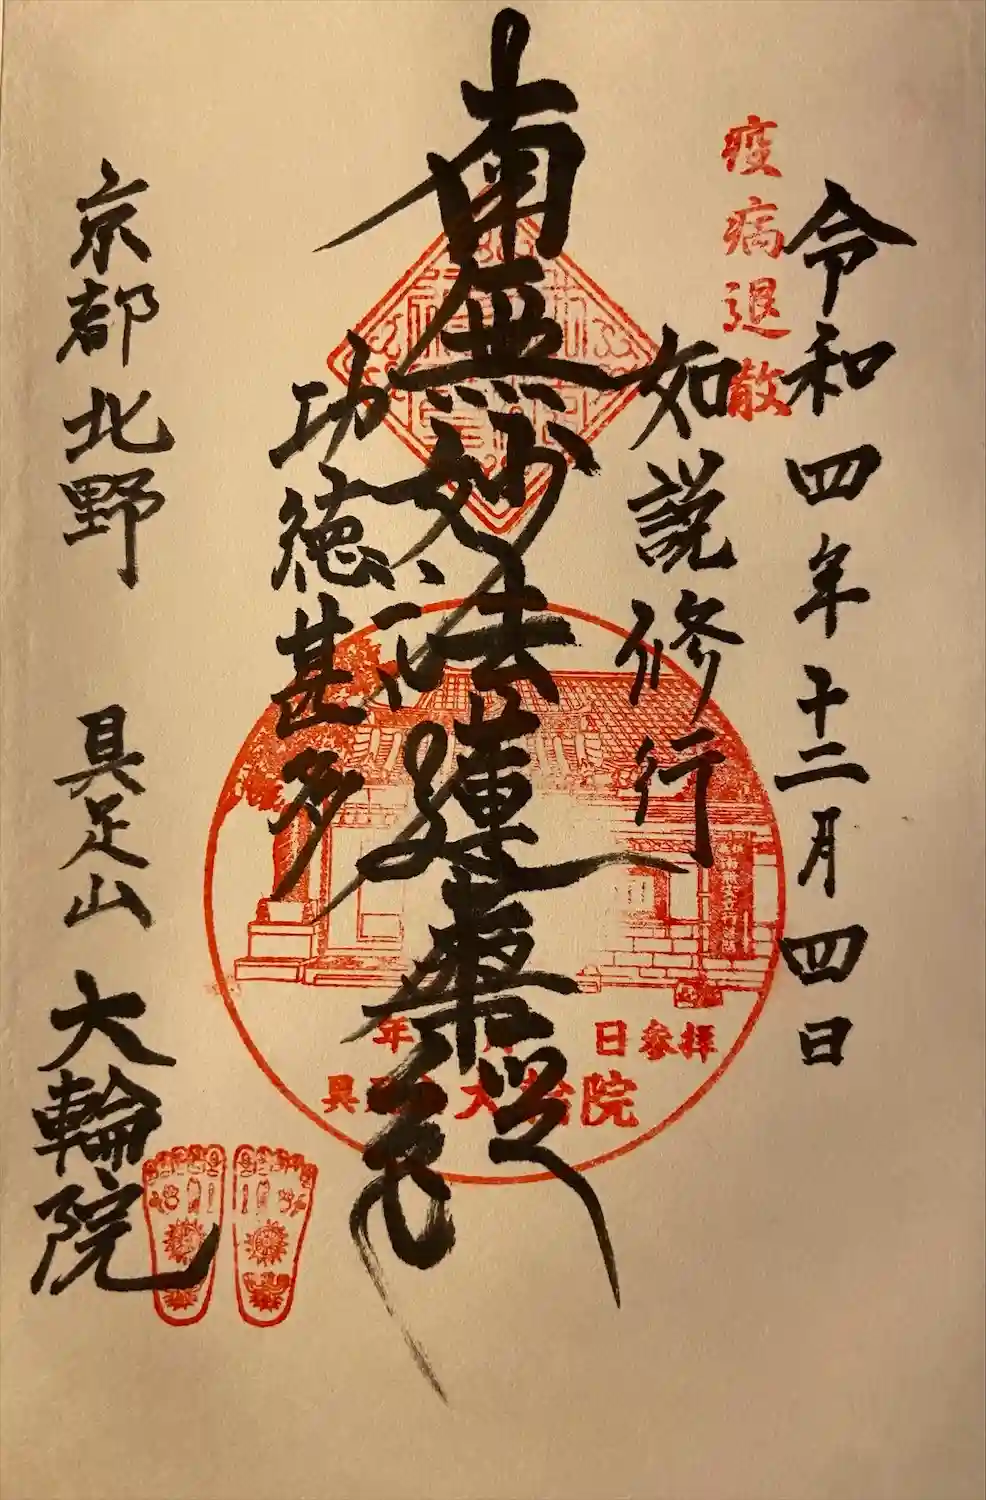 疫病退散
令和四年十二月四日
如説修行
南無妙法蓮華経
功徳甚多
京都北野 具足山 大輪院
年 月 日参拝
具足山 大輪院